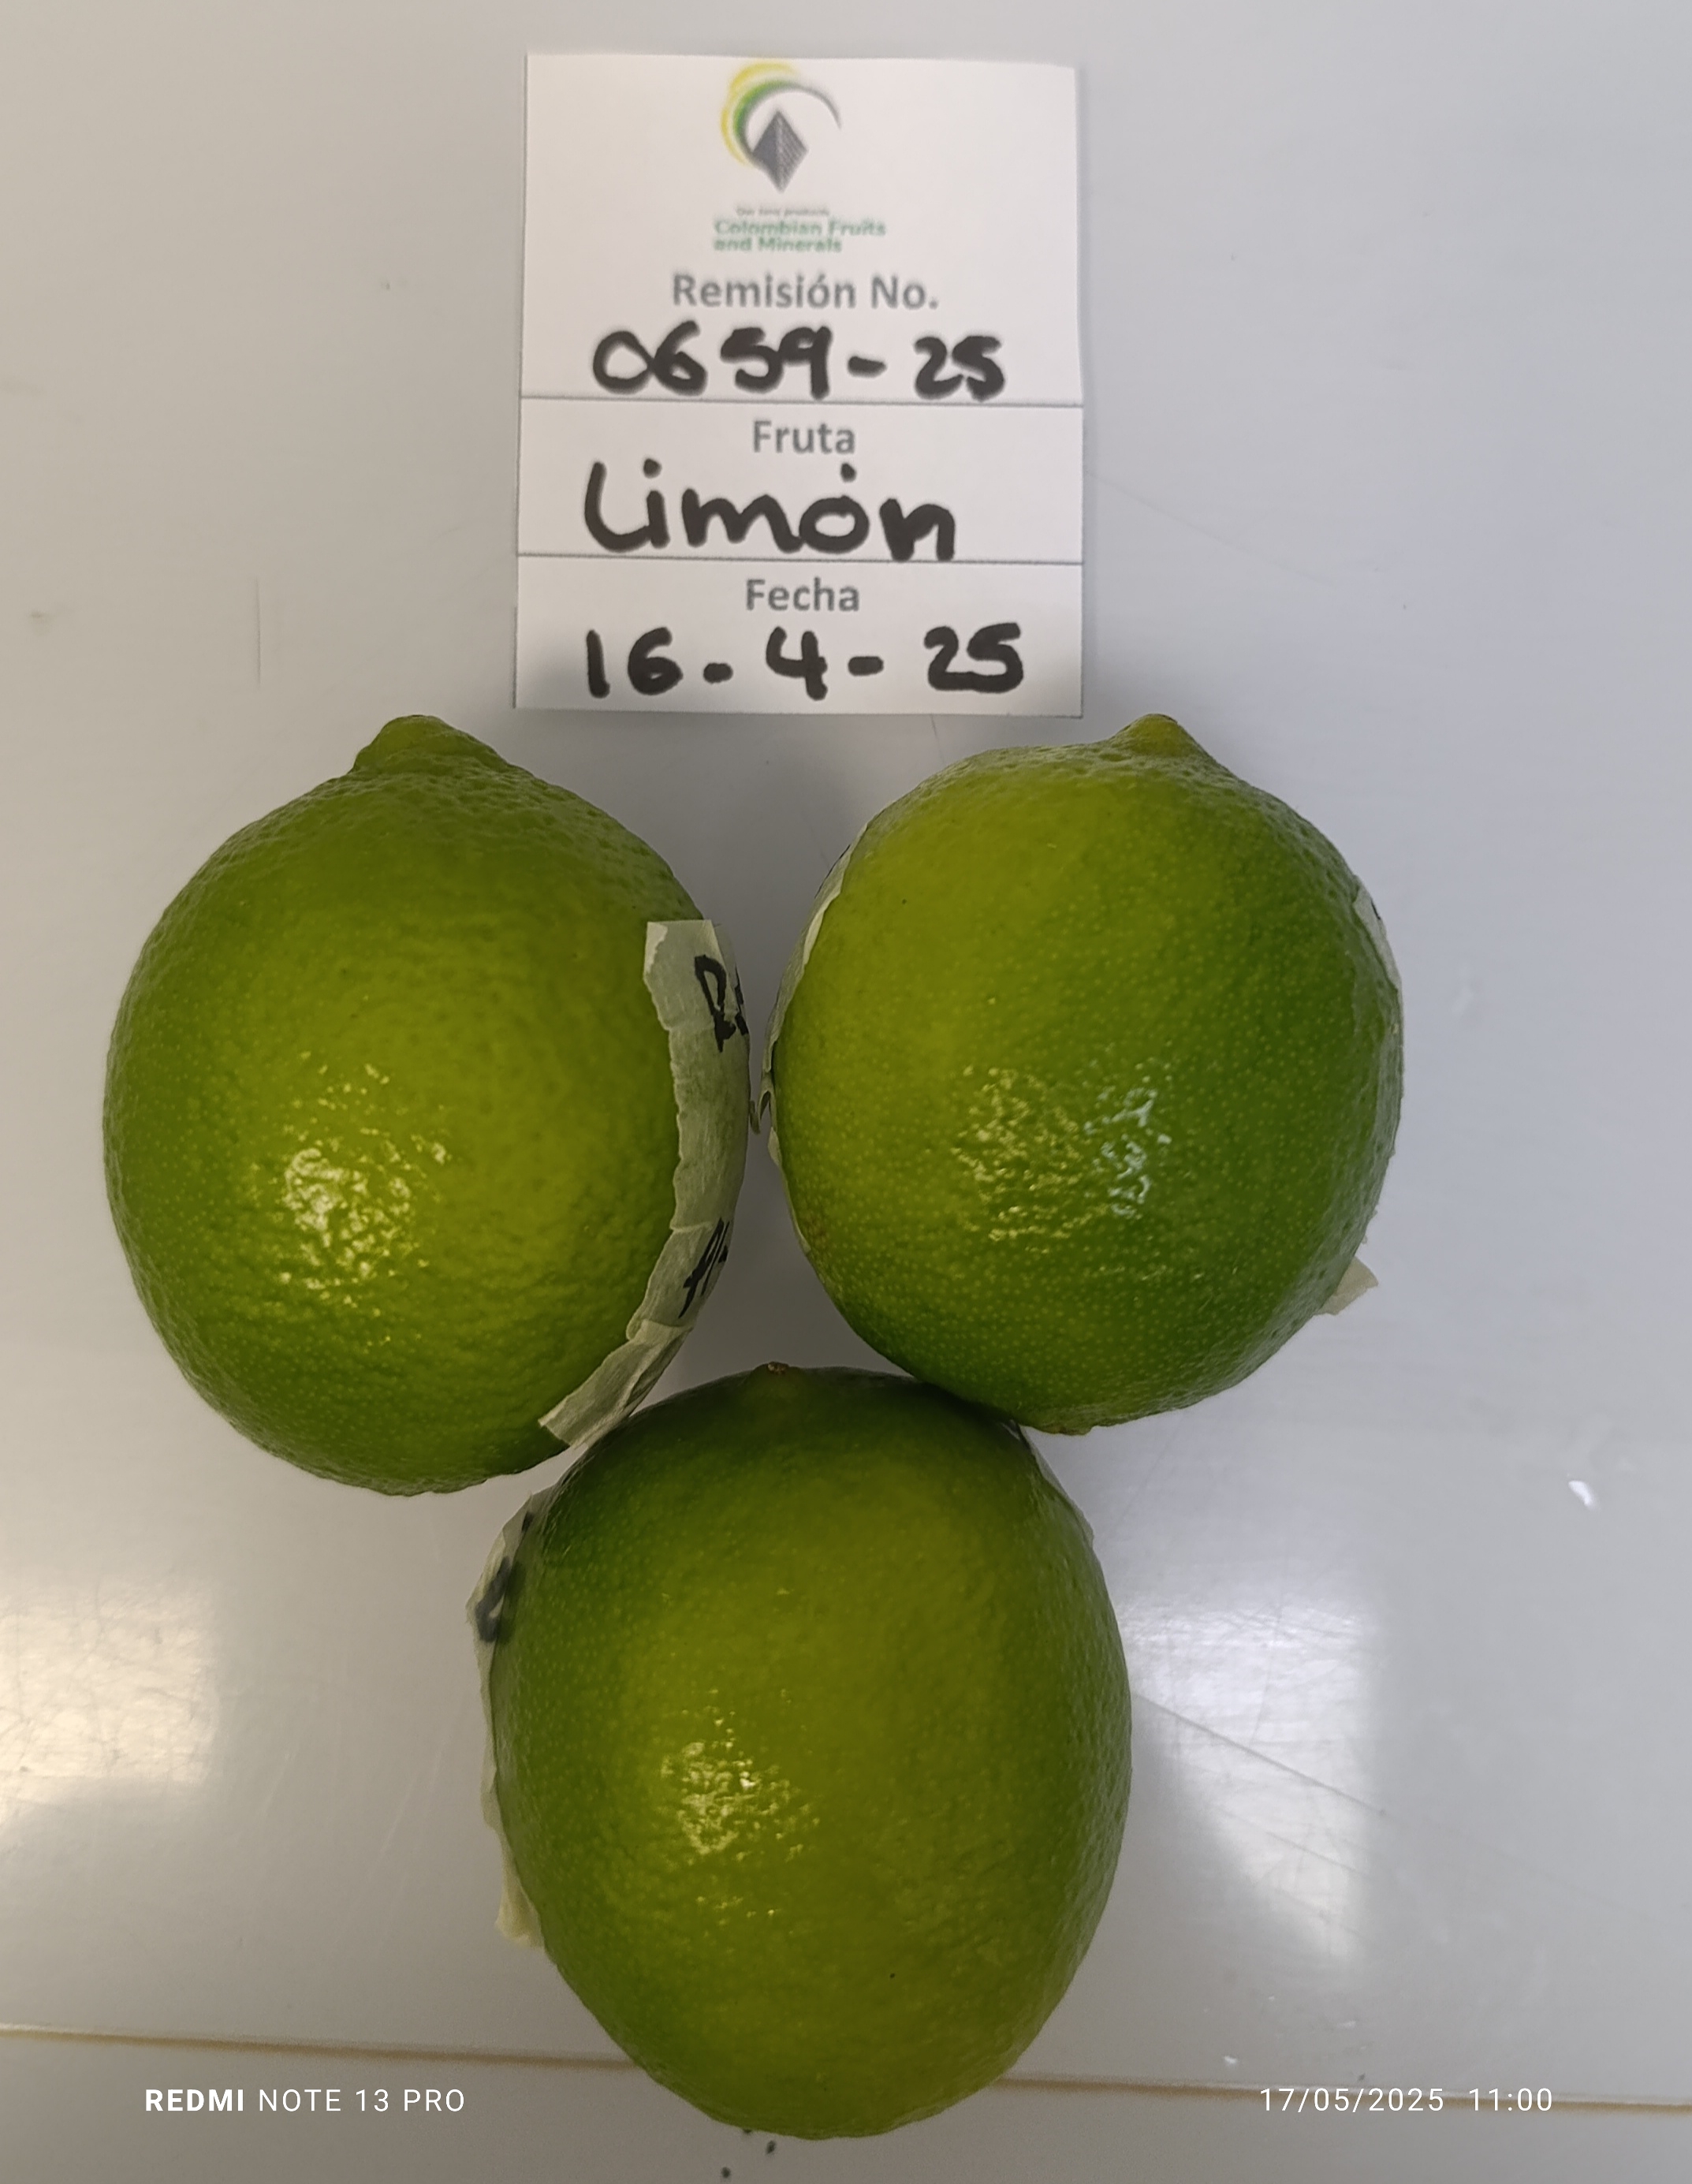 Our best products
Colombian Fruits
and Minerals
Remisión No.
0659-25
Fruta
Limón
Fecha
16-4-25
REDMI NOTE 13 PRO
17/05/2025 11:00